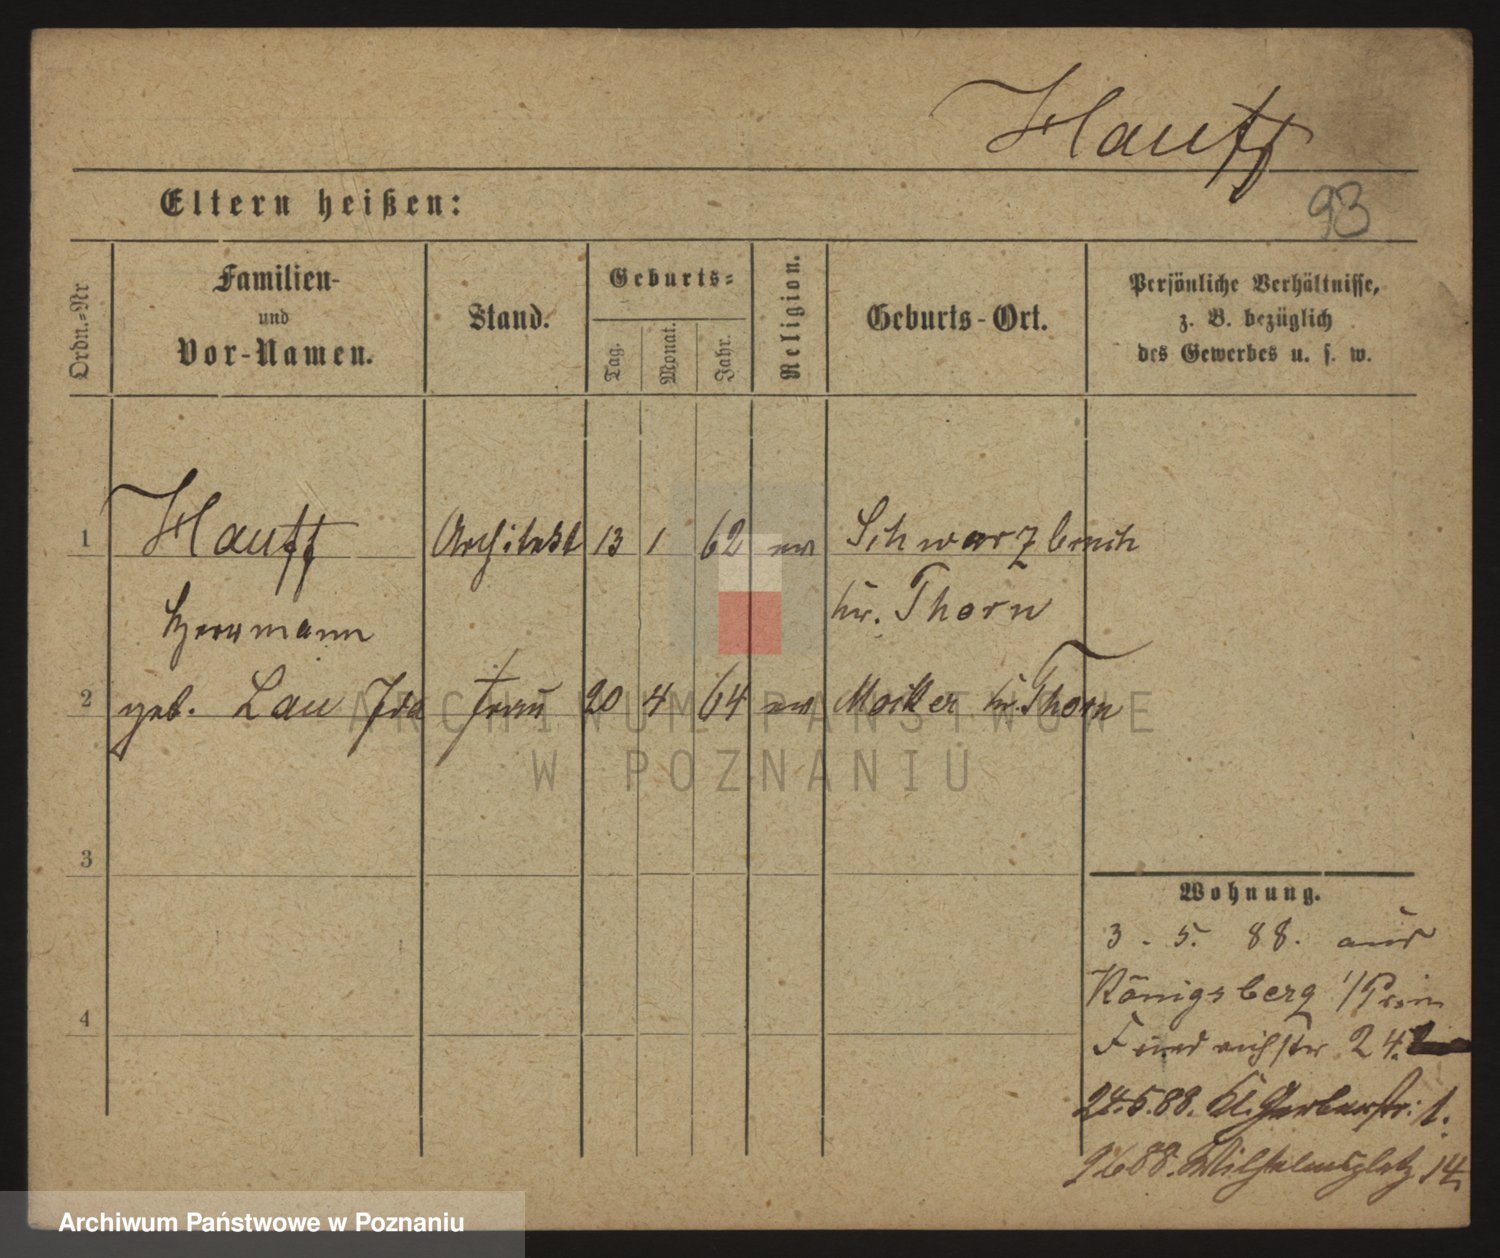 Hauff
93
Eltern heißen:
Ordn.-Nr
Familien-
und
Vor-Namen.
Stand.
Geburts-
Tag.
Monat.
Jahr.
Religion.
Geburts-Ort.
Persönliche Verhältnisse,
z. B. bezüglich
des Gewerbes u. s. w.
1 Hauff Architekt 13 1 62 ev Schwarzbruch
Herrmann Kr. Thorn
2 geb. Lau Ida Frau 20 4 64 ev Mocker Kr. Thorn
3
4
Wohnung.
3. 5. 88. aus
Königsberg
24.
24.5.88. Kl. Gerberstr: 1.
88. Wilhelmsplatz 14.
ARCHIWUM PAŃSTWOWE
W POZNANIU
Archiwum Państwowe w Poznaniu